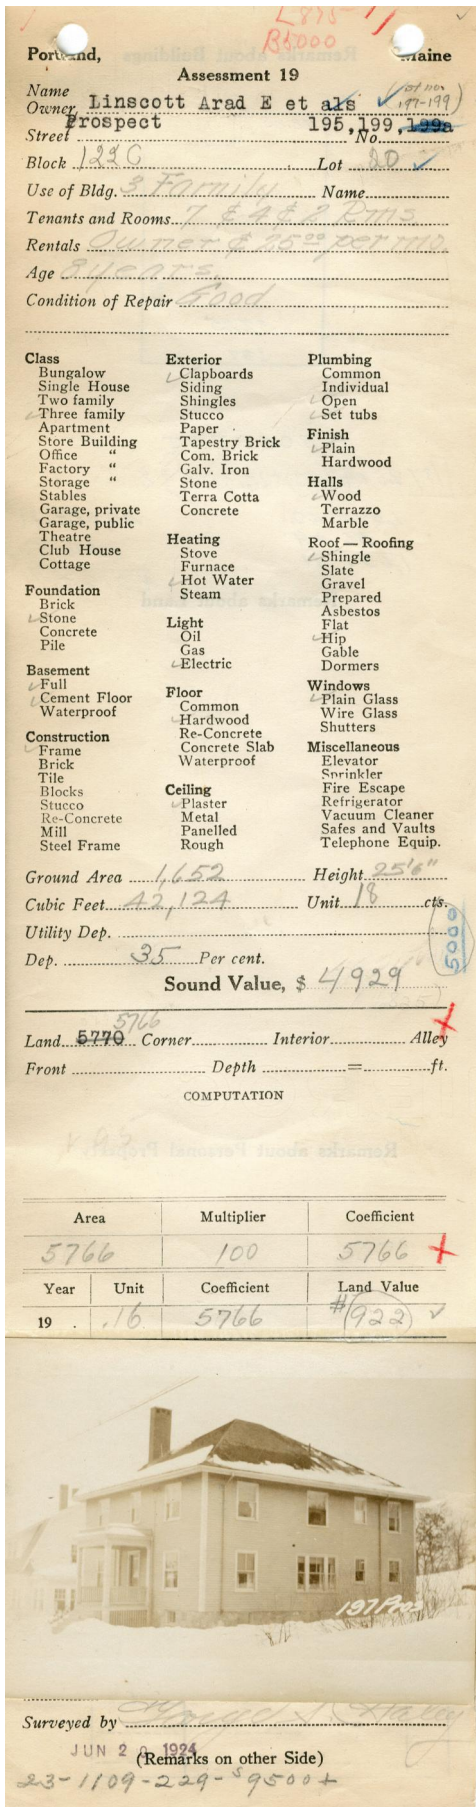 L875
B5000
Portland, Maine
Assessment 19
Name
Owner Linscott Arad E et als (Lot nos 197-199)
Street Prospect No. 195,199,199a
Block 122C Lot 20
Use of Bldg. 3 Family Name
Tenants and Rooms 7 & 4 & 2 Rms
Rentals Owner & 25.00 per mo.
Age 8 years
Condition of Repair Good
Class
Bungalow
Single House
Two family
Three family
Apartment
Store Building
Office "
Factory "
Storage "
Stables
Garage, private
Garage, public
Theatre
Club House
Cottage
Foundation
Brick
Stone
Concrete
Pile
Basement
Full
Cement Floor
Waterproof
Construction
Frame
Brick
Tile
Blocks
Stucco
Re-Concrete
Mill
Steel Frame
Exterior
Clapboards
Siding
Shingles
Stucco
Paper
Tapestry Brick
Com. Brick
Galv. Iron
Stone
Terra Cotta
Concrete
Heating
Stove
Furnace
Hot Water
Steam
Light
Oil
Gas
Electric
Floor
Common
Hardwood
Re-Concrete
Concrete Slab
Waterproof
Ceiling
Plaster
Metal
Panelled
Rough
Plumbing
Common
Individual
Open
Set tubs
Finish
Plain
Hardwood
Halls
Wood
Terrazzo
Marble
Roof — Roofing
Shingle
Slate
Gravel
Prepared
Asbestos
Flat
Hip
Gable
Dormers
Windows
Plain Glass
Wire Glass
Shutters
Miscellaneous
Elevator
Sprinkler
Fire Escape
Refrigerator
Vacuum Cleaner
Safes and Vaults
Telephone Equip.
Ground Area 1,652 Height 25'6"
Cubic Feet 42,124 Unit 18 cts.
Utility Dep.
5000
Dep. 35 Per cent.
Sound Value, $ 4929
5766
Land 5770 Corner Interior Alley
Front Depth = ft.
COMPUTATION
Area Multiplier Coefficient
5766 100 5766
Year Unit Coefficient Land Value
19 . .16 5766 #922
197 Pros
Surveyed by George S. Haley
JUN 2 1924
(Remarks on other Side)
23-1109-229-$9500+